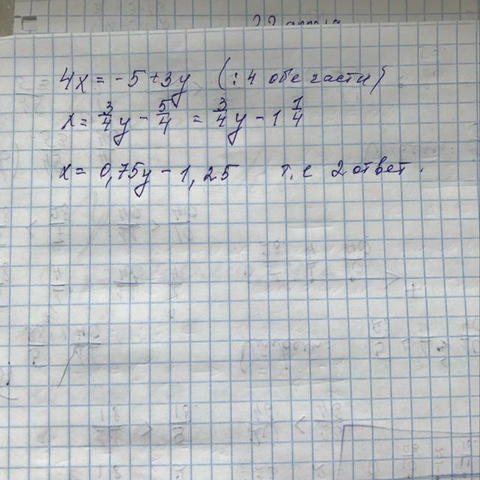 4x = -5 + 3y (:4 обе части)
x = 3/4 y - 5/4 = 3/4 y - 1 1/4
x = 0,75y - 1,25 т.е 2 ответ.